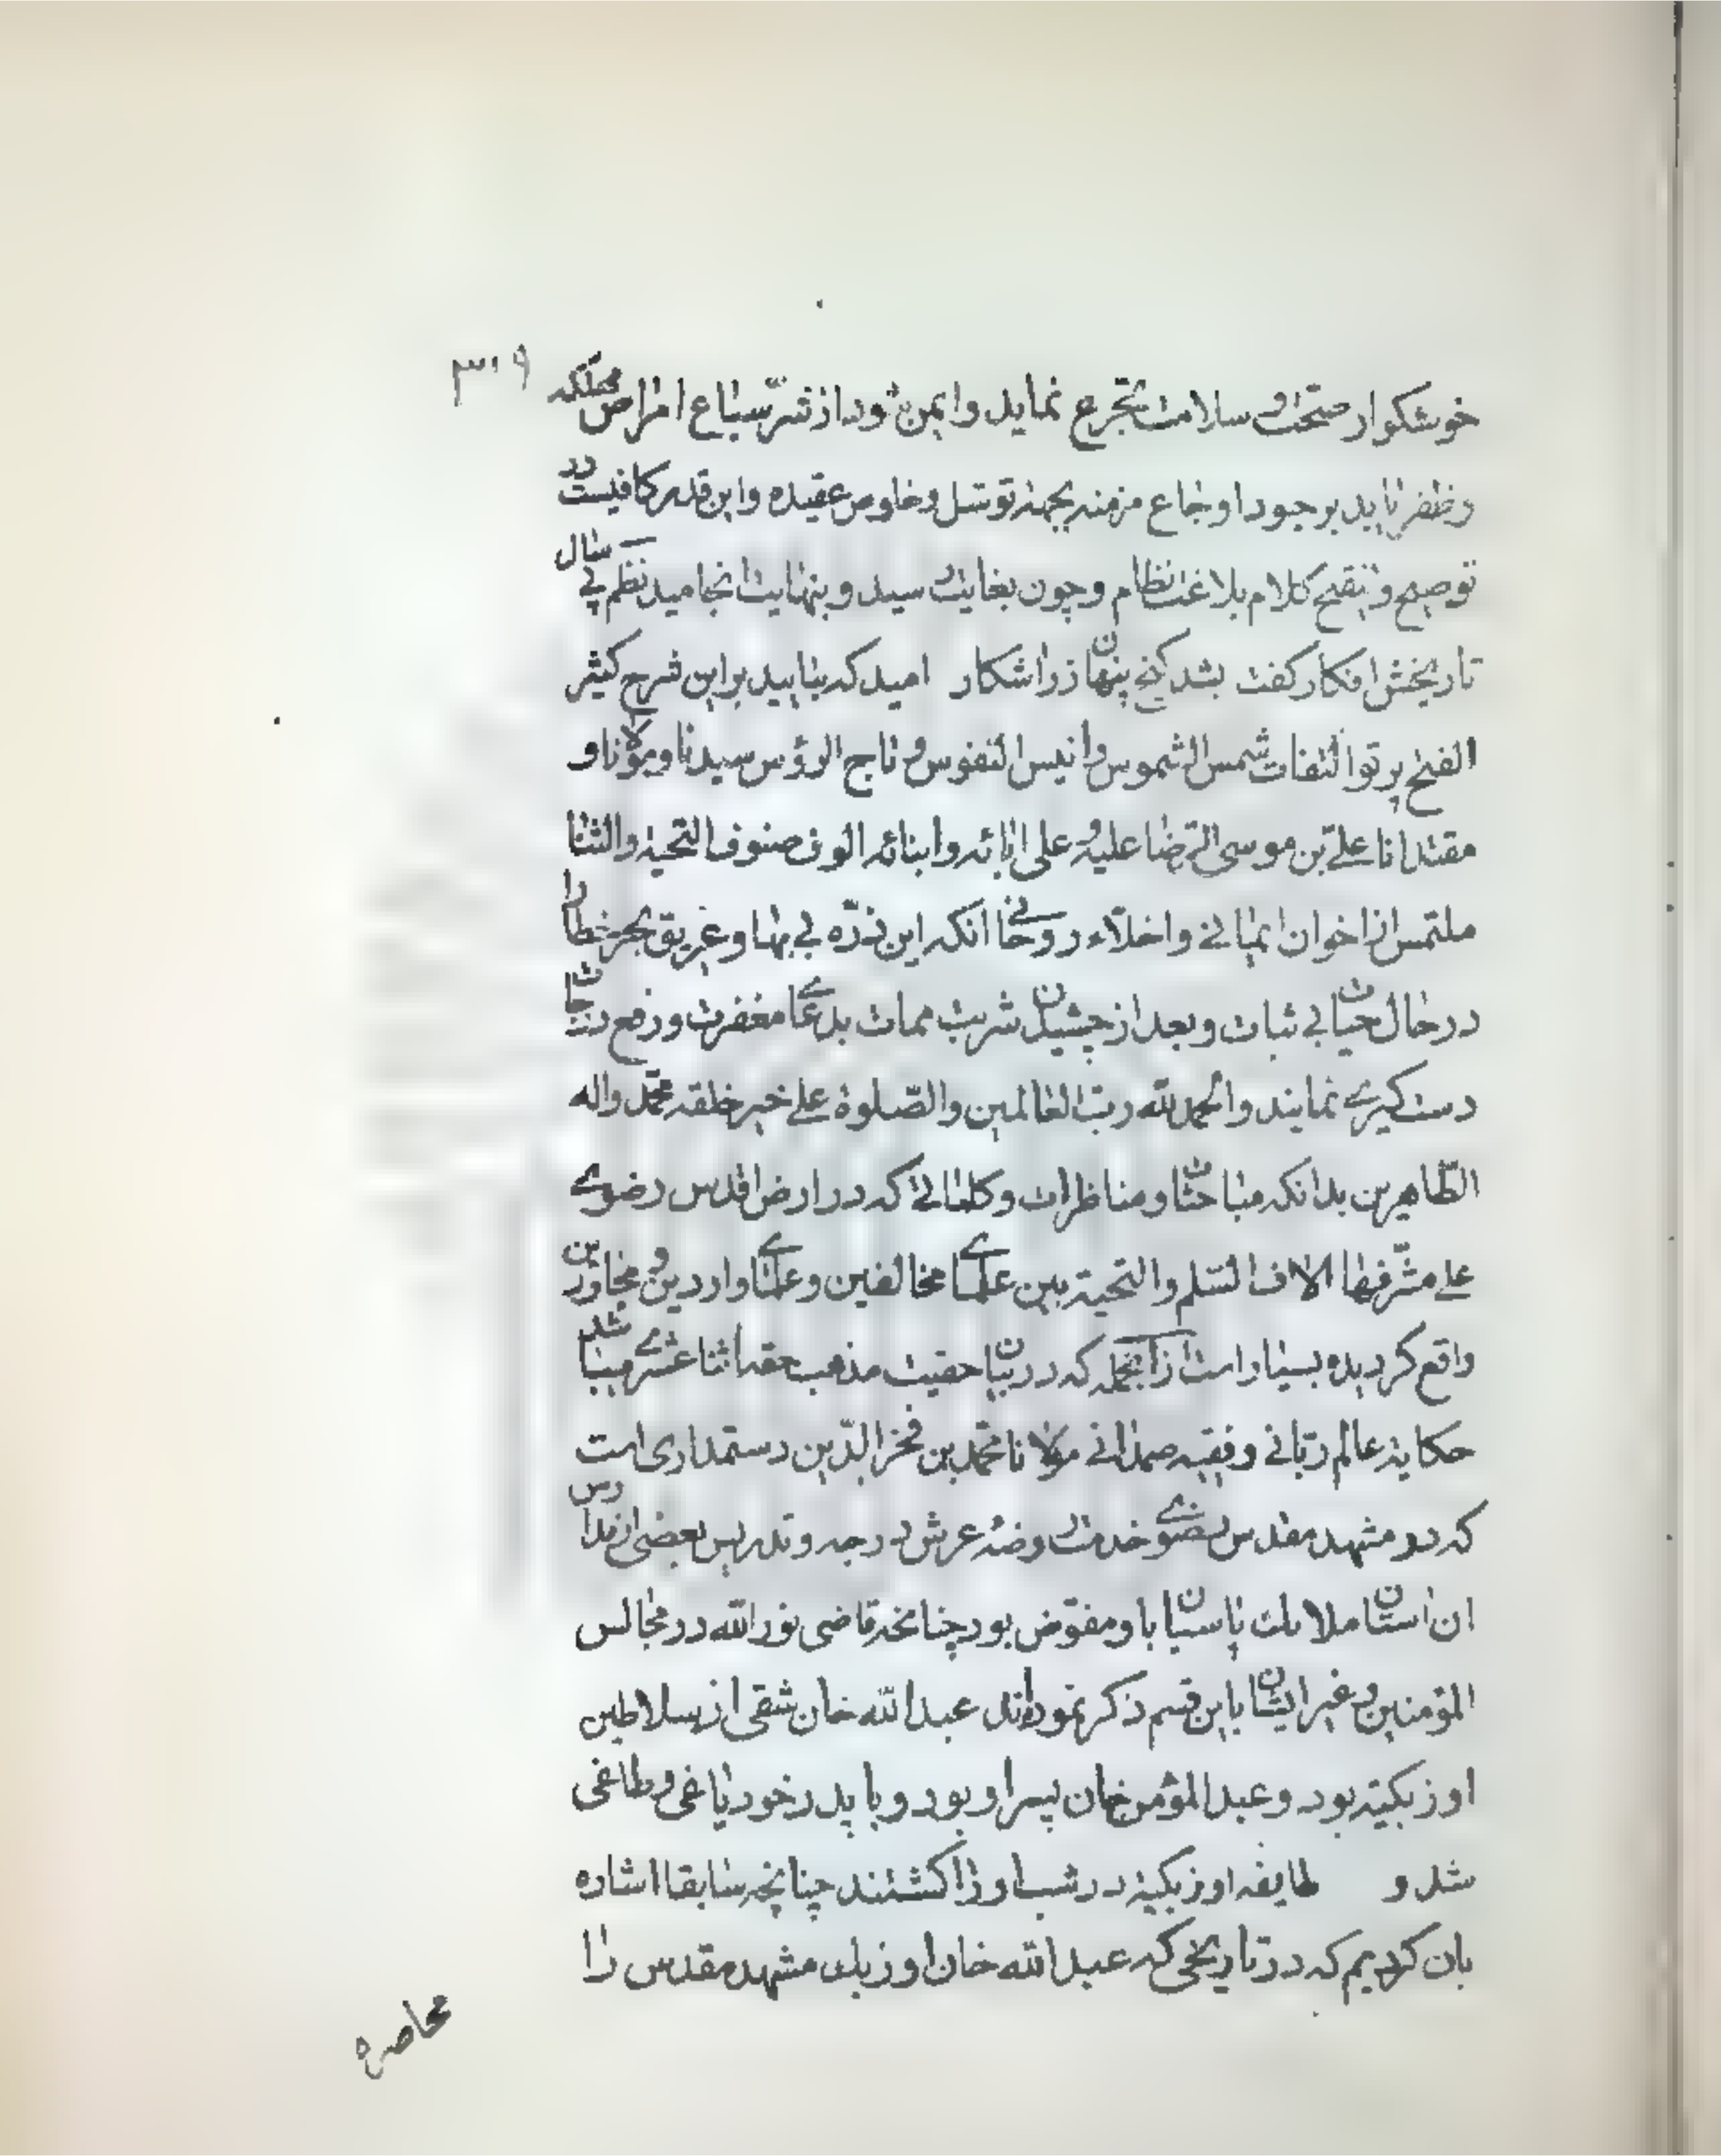 ۳۰۹
خوشکوار صحّت و سلامت تجرّع نماید و ایمن شود از شرّ سباع امراض مهلکه
و ظفر یابد بر جنود اوجاع مزمنه بجهة توسّل و خلوص عقیده و این قدر کافیست در
توضیح و تنقیح کلام بلاغت نظام و چون بغایت رسید و بنهایت انجامید نظم پی سال
تاریخش افکار کفت بشد کنج پنهان ز راز اشکار امید که بتابید بر این شرح کثیر
الفتح پرتو التفات شمس الشموس و انیس النفوس و تاج الرؤس سیدنا و مولانا و
مقتدانا علی بن موسی الرّضا علیه و علی ابائه و ابنائه الوف صنوف التحیة و الثنا
ملتمس از اخوان ایمانی و اخلّاء روحانی انکه این ذرّه بی بها و غریق بحر خطا را
در حال حیات بی ثبات و بعد از چشیدن شربت ممات بدعای مغفرت و رفع درجات
دست کیری نمایند و الحمد لله ربّ العالمین و الصّلوة علی خیر خلقه محمّد و اله
الطّاهرین بدانکه مباحثات و مناظرات و کلماتی که در ارض اقدس رضوی
علی مشرّفها الاف السّلم و التحیة بین علمای مخالفین و علمای واردین و مجاورین
واقع کردیده بسیار است از انجمله که در بیان حقیت مذهب حقه اثنا عشری مبین شد
حکایة عالم ربّانی و فقیه صمدانی مولانا محمّد بن فخر الدّین رستمداری است
که در مشهد مقدس رضوی خدمت روضۀ عرش درجه و تدریس بعضی از مدارس
ان استان ملایک پاسبان باو مفوّض بود چنانچه قاضی نور الله در مجالس
المؤمنین و غیر ایشان باین قسم ذکر نموده اند عبد الله خان شقی از سلاطین
اوزبکیّه بود و عبد المؤمن خان پسر او بود و با پدر خود یاغی و طاغی
شد و طایفه اوزبکیّه در شب او را کشتند چنانچه سابقا اشاره
بان کردیم که در تاریخی که عبد الله خان اوزبک مشهد مقدس را
محاصره